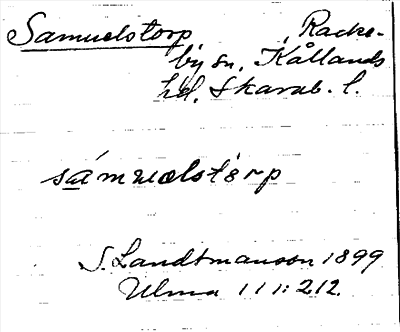 Samuelstorp, Racke-
by sn, Kållands
hd, Skarab. l.
sámuɷlstòrp
S. Landtmanson 1899
Ulma 111:212.